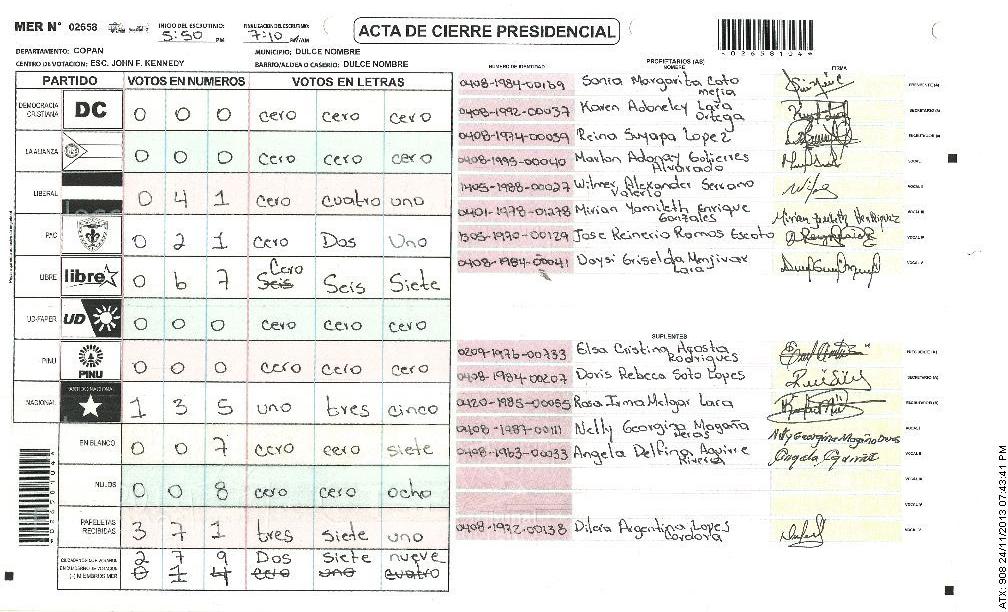 MER N° 02658
INICIO DEL ESCRUTINIO: 5:50 PM
FINALIZACION DEL ESCRUTINIO: 7:10 PM/AM
ACTA DE CIERRE PRESIDENCIAL
*02658104*
DEPARTAMENTO: COPAN
MUNICIPIO: DULCE NOMBRE
CENTRO DE VOTACION: ESC. JOHN F. KENNEDY
BARRIO/ALDEA O CASERIO: DULCE NOMBRE
PARTIDO VOTOS EN NUMEROS VOTOS EN LETRAS
DEMOCRACIA CRISTIANA DC 0 0 0 cero cero cero
LA ALIANZA 0 0 0 cero cero cero
LIBERAL 0 4 1 cero cuatro uno
PAC 0 2 1 Cero Dos Uno
LIBRE libre 0 6 7 Cero Seis Seis Siete
UD-FAPER UD 0 0 0 cero cero cero
PINU PINU 0 0 0 cero cero cero
NACIONAL PARTIDO NACIONAL 1 3 5 uno tres cinco
EN BLANCO 0 0 7 cero cero siete
NULOS 0 0 8 cero cero ocho
PAPELETAS RECIBIDAS 3 7 1 tres siete uno
2 7 9 Dos siete nueve
(+) MIEMBROS MER 0 1 4 cero uno cuatro
NUMERO DE IDENTIDAD
PROPIETARIOS (AS)
NOMBRE
FIRMA
0408-1984-00169 Sonia Margarita Coto Mejia PRESIDENTE (A)
0408-1992-00037 Karen Adoneley Lara Ortega SECRETARIO (A)
0408-1974-00059 Reina Suyapa Lopez ESCRUTADOR (A)
0408-1995-00040 Marlon Adonay Gutierres Alvarado VOCAL I
1405-1988-00027 Wilmer Alexander Serrano Valerio VOCAL II
0401-1978-01278 Mirian Yamileth Enrique Gonzales VOCAL III
1305-1970-00129 Jose Reinerio Ramos Escoto VOCAL IV
0408-1984-00041 Daysi Griselda Menjivar Lara VOCAL V
SUPLENTES
0209-1976-00733 Elsa Cristina Acosta Rodrigues PRESIDENTE (A)
0408-1984-00207 Doris Rebeca Soto Lopes SECRETARIO (A)
0420-1985-00055 Rosa Irma Melgar Lara ESCRUTADOR (A)
0408-1987-00111 Nelly Georgina Magaña Neras Nelly Georgina Magaña VOCAL I
0408-1963-00033 Angela Delfina Aguirre Rivera Angela Aguirre VOCAL II
VOCAL III
VOCAL IV
0408-1972-00138 Dilcia Argentina Lopes Cordova VOCAL V
*02658104*
ATX: 908 24/11/2013 07:43:41 PM